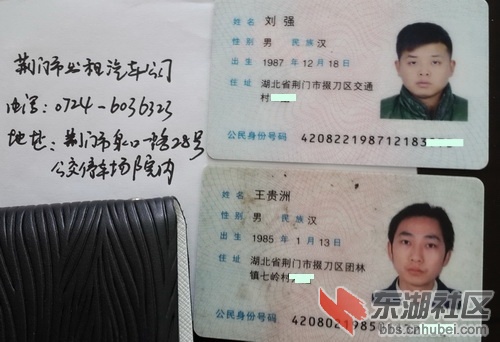 荆门市出租汽车公司
电话：0724-6036323
地址：荆门市泉口一路28号
公交停车场院内
姓名 刘强
性别 男 民族 汉
出生 1987 年 12 月 18 日
住址 湖北省荆门市掇刀区交通
村
公民身份号码 420822198712183
姓名 王贵洲
性别 男 民族 汉
出生 1985 年 1 月 13 日
住址 湖北省荆门市掇刀区团林
镇七岭村
公民身份号码 4208021985
东湖社区
bbs.cnhubei.com